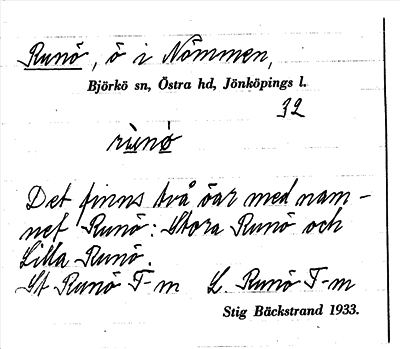 Runö, ö i Nömmen,
Björkö sn, Östra hd, Jönköpings l.
32
runö
Det finns två öar med nam-
net Runö: Stora Runö och
Lilla Runö.
St Runö T-m L. Runö T-m
Stig Bäckstrand 1933.